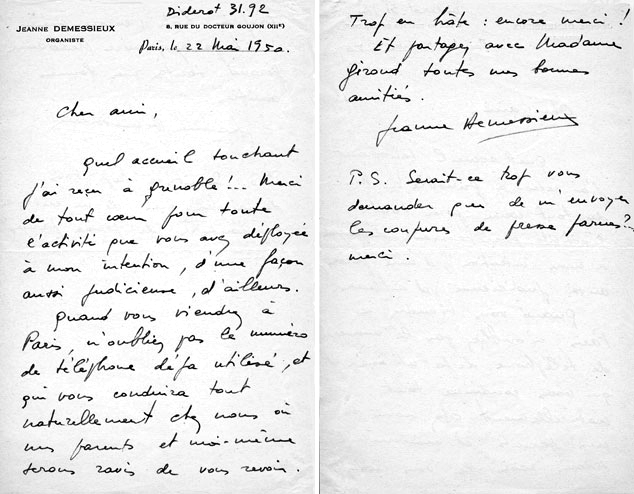 Diderot 31.92
JEANNE DEMESSIEUX
ORGANISTE
8, RUE DU DOCTEUR GOUJON (XIIe)
Paris, le 22 Mai 1950.
Cher ami,
Quel accueil touchant
j'ai reçu à Grenoble !... Merci
de tout cœur pour toute
l'activité que vous avez déployée
à mon intention, d'une façon
aussi judicieuse, d'ailleurs.
Quand vous viendrez à
Paris, n'oubliez pas le numéro
de téléphone déjà utilisé, et
qui vous conduira tout
naturellement chez nous où
mes parents et moi-même
serons ravis de vous revoir.
Trop en hâte : encore merci !
Et partagez avec Madame
Giroud toutes mes bonnes
amitiés.
Jeanne Demessieux
P.S. Serait-ce trop vous
demander que de m'envoyer
les coupures de presse parues ?
merci.